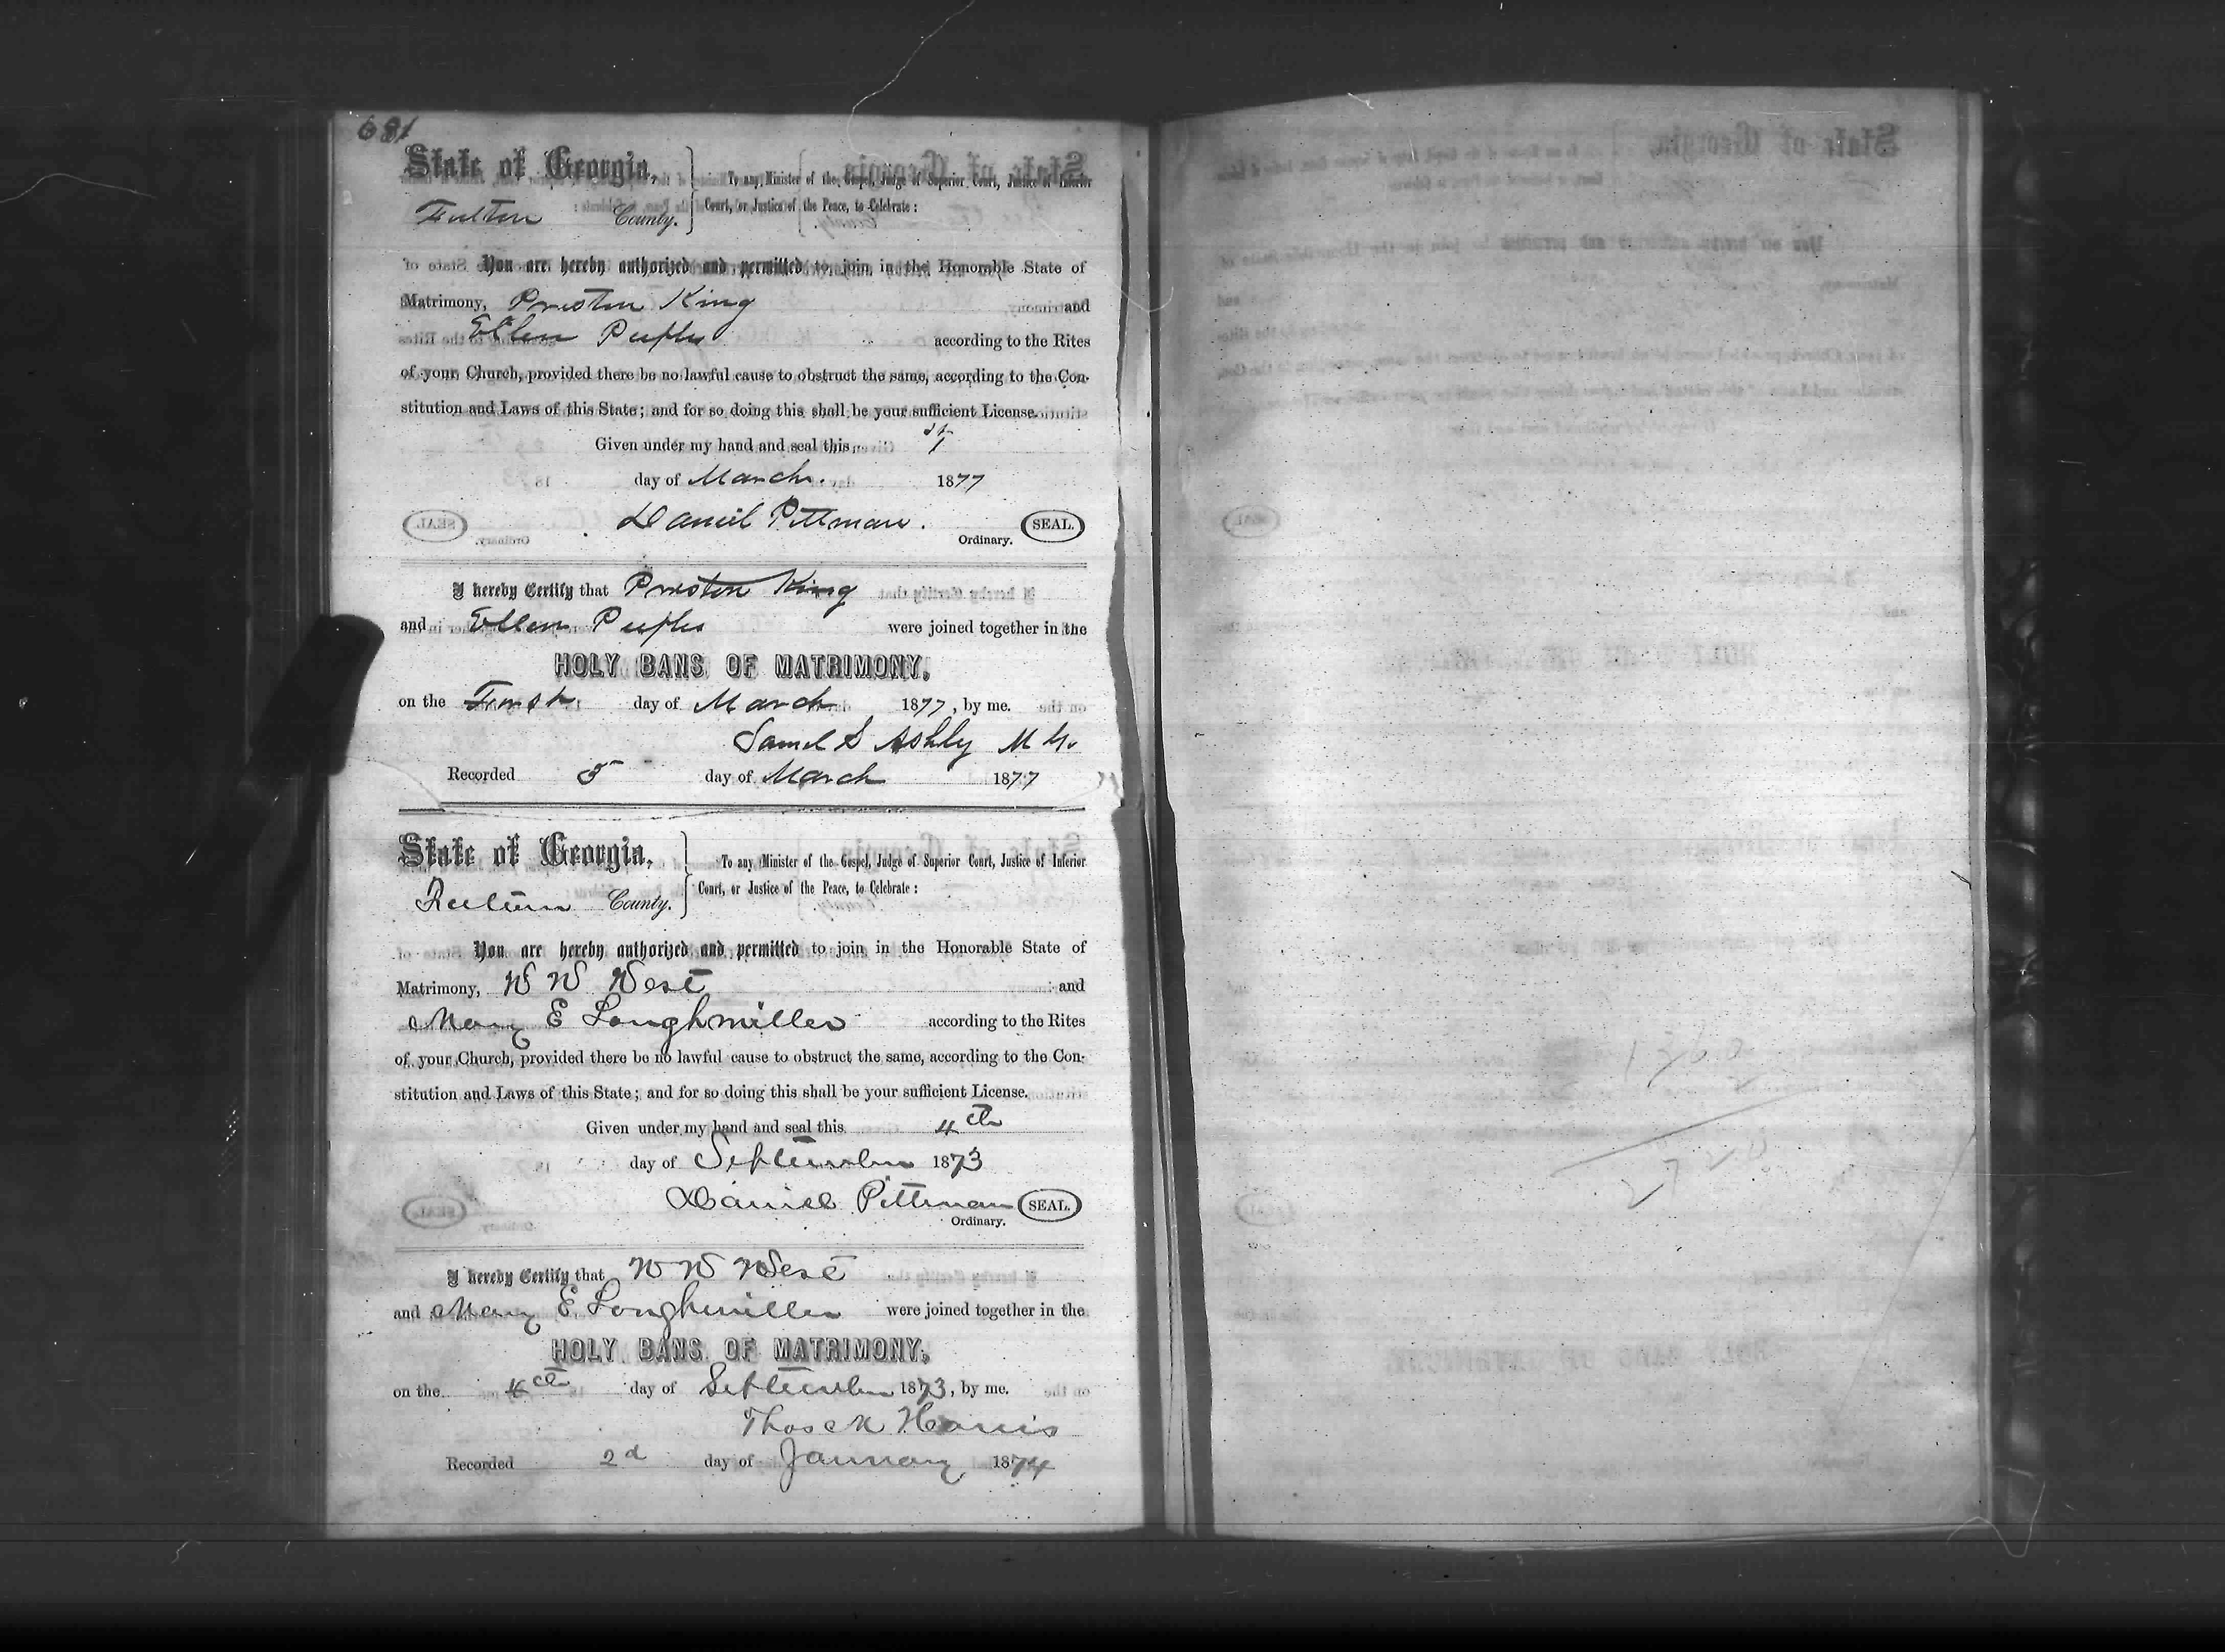 681
State of Georgia,
Fulton County.
To any Minister of the Gospel, Judge of Superior Court, Justice of Inferior
Court, or Justice of the Peace, to Celebrate:
You are hereby authorized and permitted to join in the Honorable State of
Matrimony, Preston King and
Ellen Peeples according to the Rites
of your Church, provided there be no lawful cause to obstruct the same, according to the Con-
stitution and Laws of this State; and for so doing this shall be your sufficient License.
Given under my hand and seal this 1st
day of March. 1877
Daniel Pittman. SEAL.
Ordinary.
I hereby Certify that Preston King
and Ellen Peeples were joined together in the
HOLY BANS OF MATRIMONY,
on the First day of March 1877, by me.
Saml S Ashly M G.
Recorded 5 day of March 1877
State of Georgia,
Fulton County.
To any Minister of the Gospel, Judge of Superior Court, Justice of Inferior
Court, or Justice of the Peace, to Celebrate:
You are hereby authorized and permitted to join in the Honorable State of
Matrimony, W W West and
Mary E Loughmiller according to the Rites
of your Church, provided there be no lawful cause to obstruct the same, according to the Con-
stitution and Laws of this State; and for so doing this shall be your sufficient License.
Given under my hand and seal this 4th
day of September 1873
Daniel Pittman SEAL.
Ordinary.
I hereby Certify that W W West
and Mary E Loughmiller were joined together in the
HOLY BANS OF MATRIMONY,
on the 4th day of September 1873, by me.
Thos M Harris
Recorded 2d day of January 1874